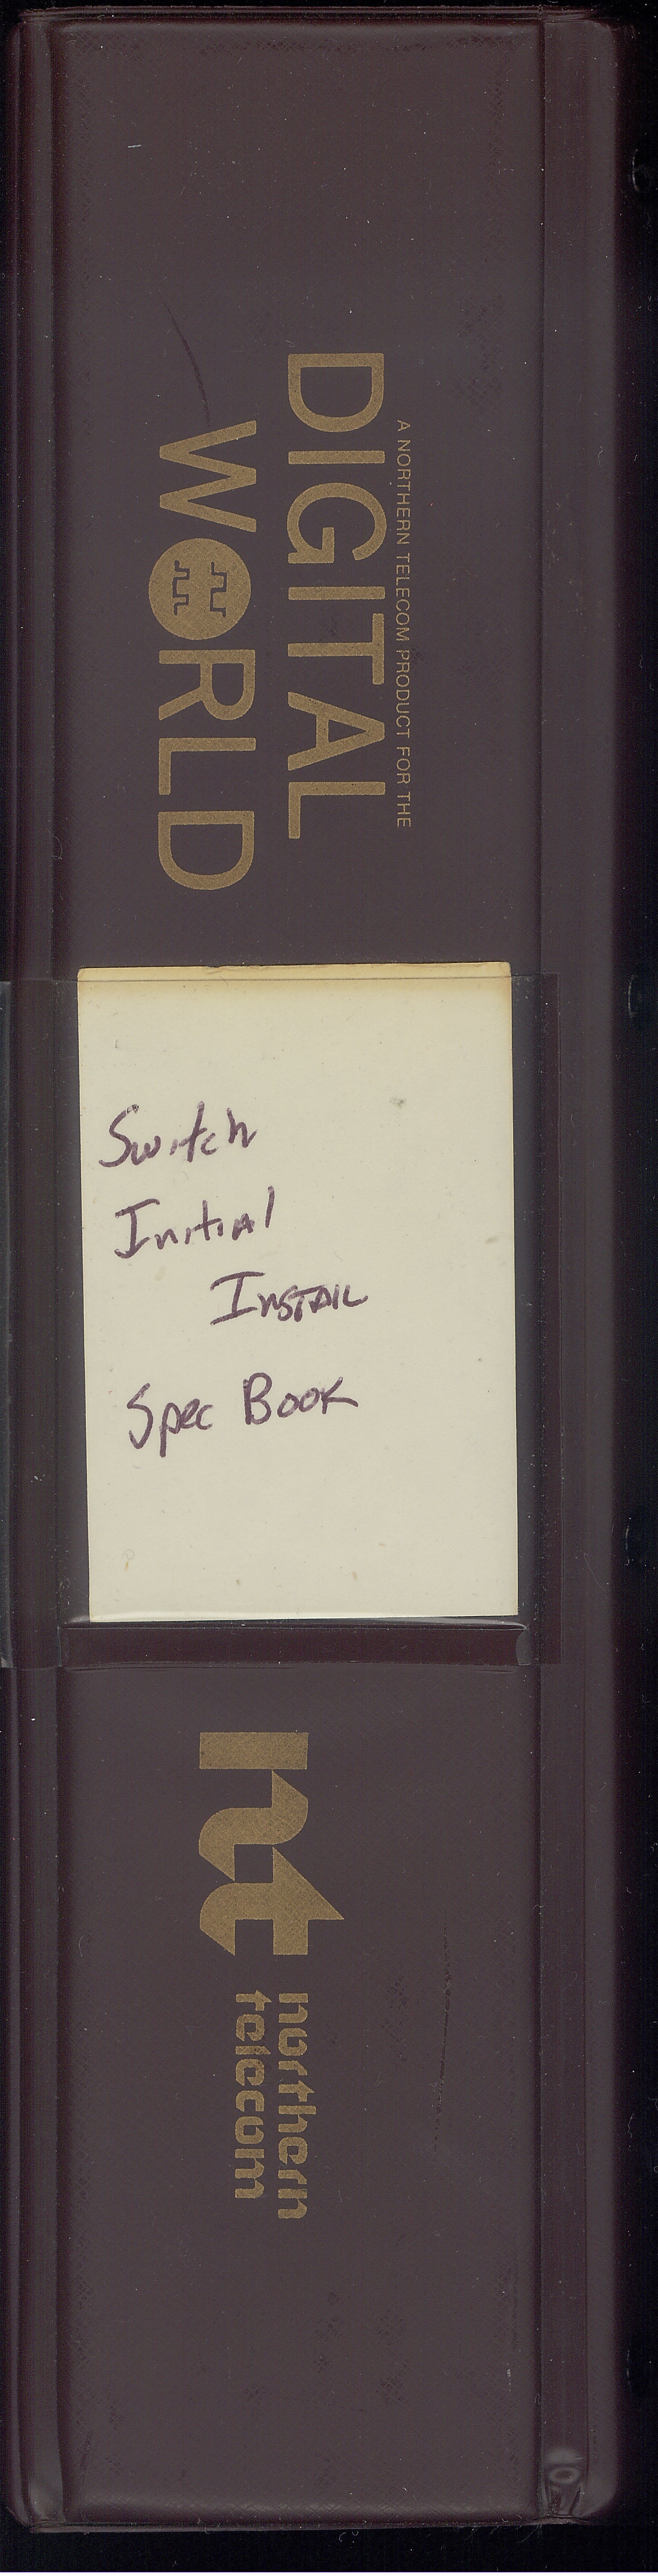 A NORTHERN TELECOM PRODUCT FOR THE
DIGITAL
WORLD
Switch
Initial
Install
Spec Book
nt
northern
telecom